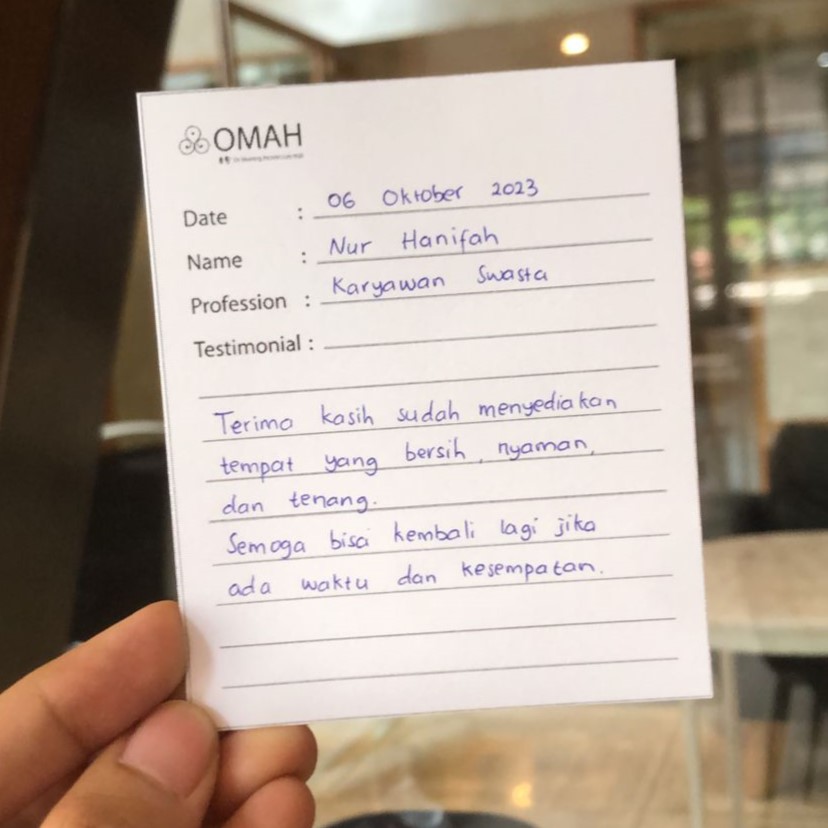 OMAH
Date : 06 Oktober 2023
Name : Nur Hanifah
Profession : Karyawan Swasta
Testimonial :
Terima kasih sudah menyediakan
tempat yang bersih, nyaman,
dan tenang.
Semoga bisa kembali lagi jika
ada waktu dan kesempatan.